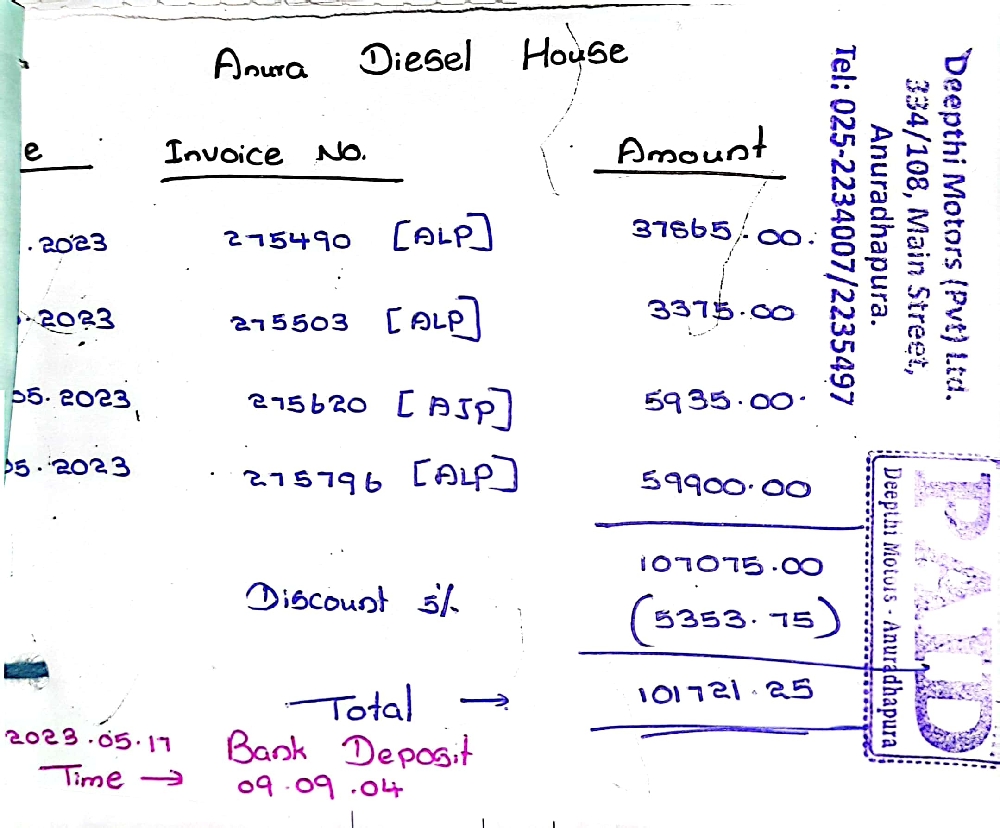 Anura Diesel House
e Invoice No. Amount
.2023 275490 [ALP] 37865.00.
.2023 275503 [ALP] 3375.00
05.2023, 275620 [AJP] 5935.00.
05.2023 275796 [ALP] 59900.00
107075.00
Discount 5% (5353.75)
Total → 101721.25
2023.05.17 Bank Deposit
Time → 09.09.04
Deepthi Motors (Pvt) Ltd.
334/108, Main Street,
Anuradhapura.
Tel: 025-2234007/2235497
PAID
Deepthi Motors - Anuradhapura